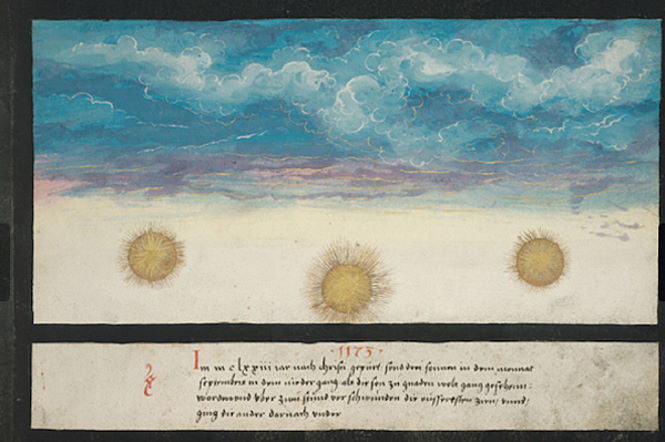 · 1173 ·
Im m c lxxiii iar nach christi gepurt, send drei sonnen in dem monnat
septembris in dem nidergang als die son zu gnaden wolt gang gesehein:
worden vnd vber zwue stund verschwunden die eüsseresten zwu, vnnd
ging die ander darnach vnder